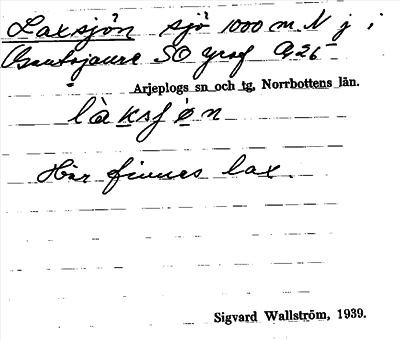 Laxsjön sjö 1000 m N j i
SO
Arjeplogs sn och tg, Norrbottens län.
làksjøn
Här finnes lax.
Sigvard Wallström, 1939.